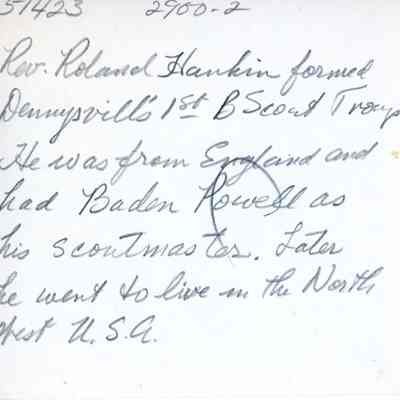 51423 2900-2
Rev. Roland Hankin formed
Dennysvill's 1st B Scout Troup
He was from England and
had Baden Powell as
his scoutmaster. Later
he went to live in the North
West U.S.A.